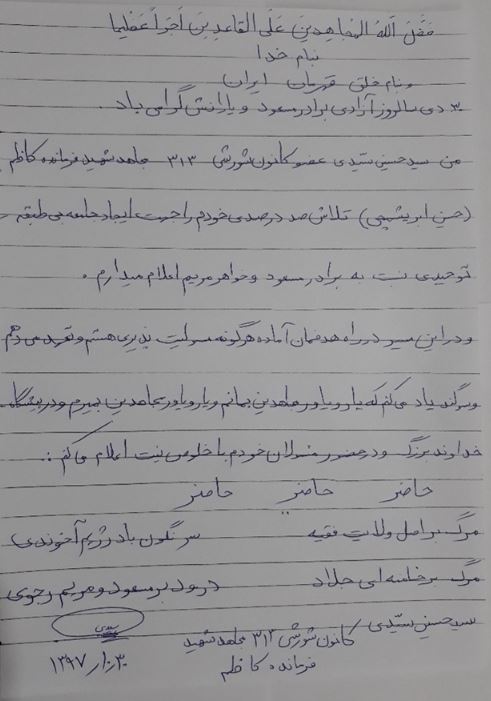 فَضَّلَ اللَّهُ المُجاهِدينَ عَلَى القاعِدينَ أَجراً عَظيما
بنام خدا
وبنام خلق قهرمان ایران
۳۰ دی سالروز آزادی برادر مسعود و یارانش گرامی باد.
من سید حسین سیّدی عضو کانون شورشی ۳۱۳ مجاهد شهید فرمانده کاظم
(حسن ابریشمچی) تلاش صد درصدی خودم را جهت ایجاد جامعه بی طبقه
توحیدی نسبت به برادر مسعود و خواهر مریم اعلام میدارم.
و در این مسیر در راه هدفمان آماده هرگونه مسولیت پذیری هستم و تعهد می دهم
وسوگند یاد می کنم که یار و یاور مجاهدین بمانم و یار و یاور مجاهدین بمیرم و در پیشگاه
خداوند بزرگ و در حضور مسئولان خودم با خلوص نیت اعلام می کنم :.
حاضر حاضر حاضر
مرگ بر اصل ولایت فقیه سرنگون باد رژیم آخوندی
مرگ بر خامنه ای جلاد درود بر مسعود و مریم رجوی
سید حسین سیّدی
کانون شورشی ۳۱۳ مجاهد شهید
فرمانده کاظم
۱۳۹۷/۱۰/۳۰